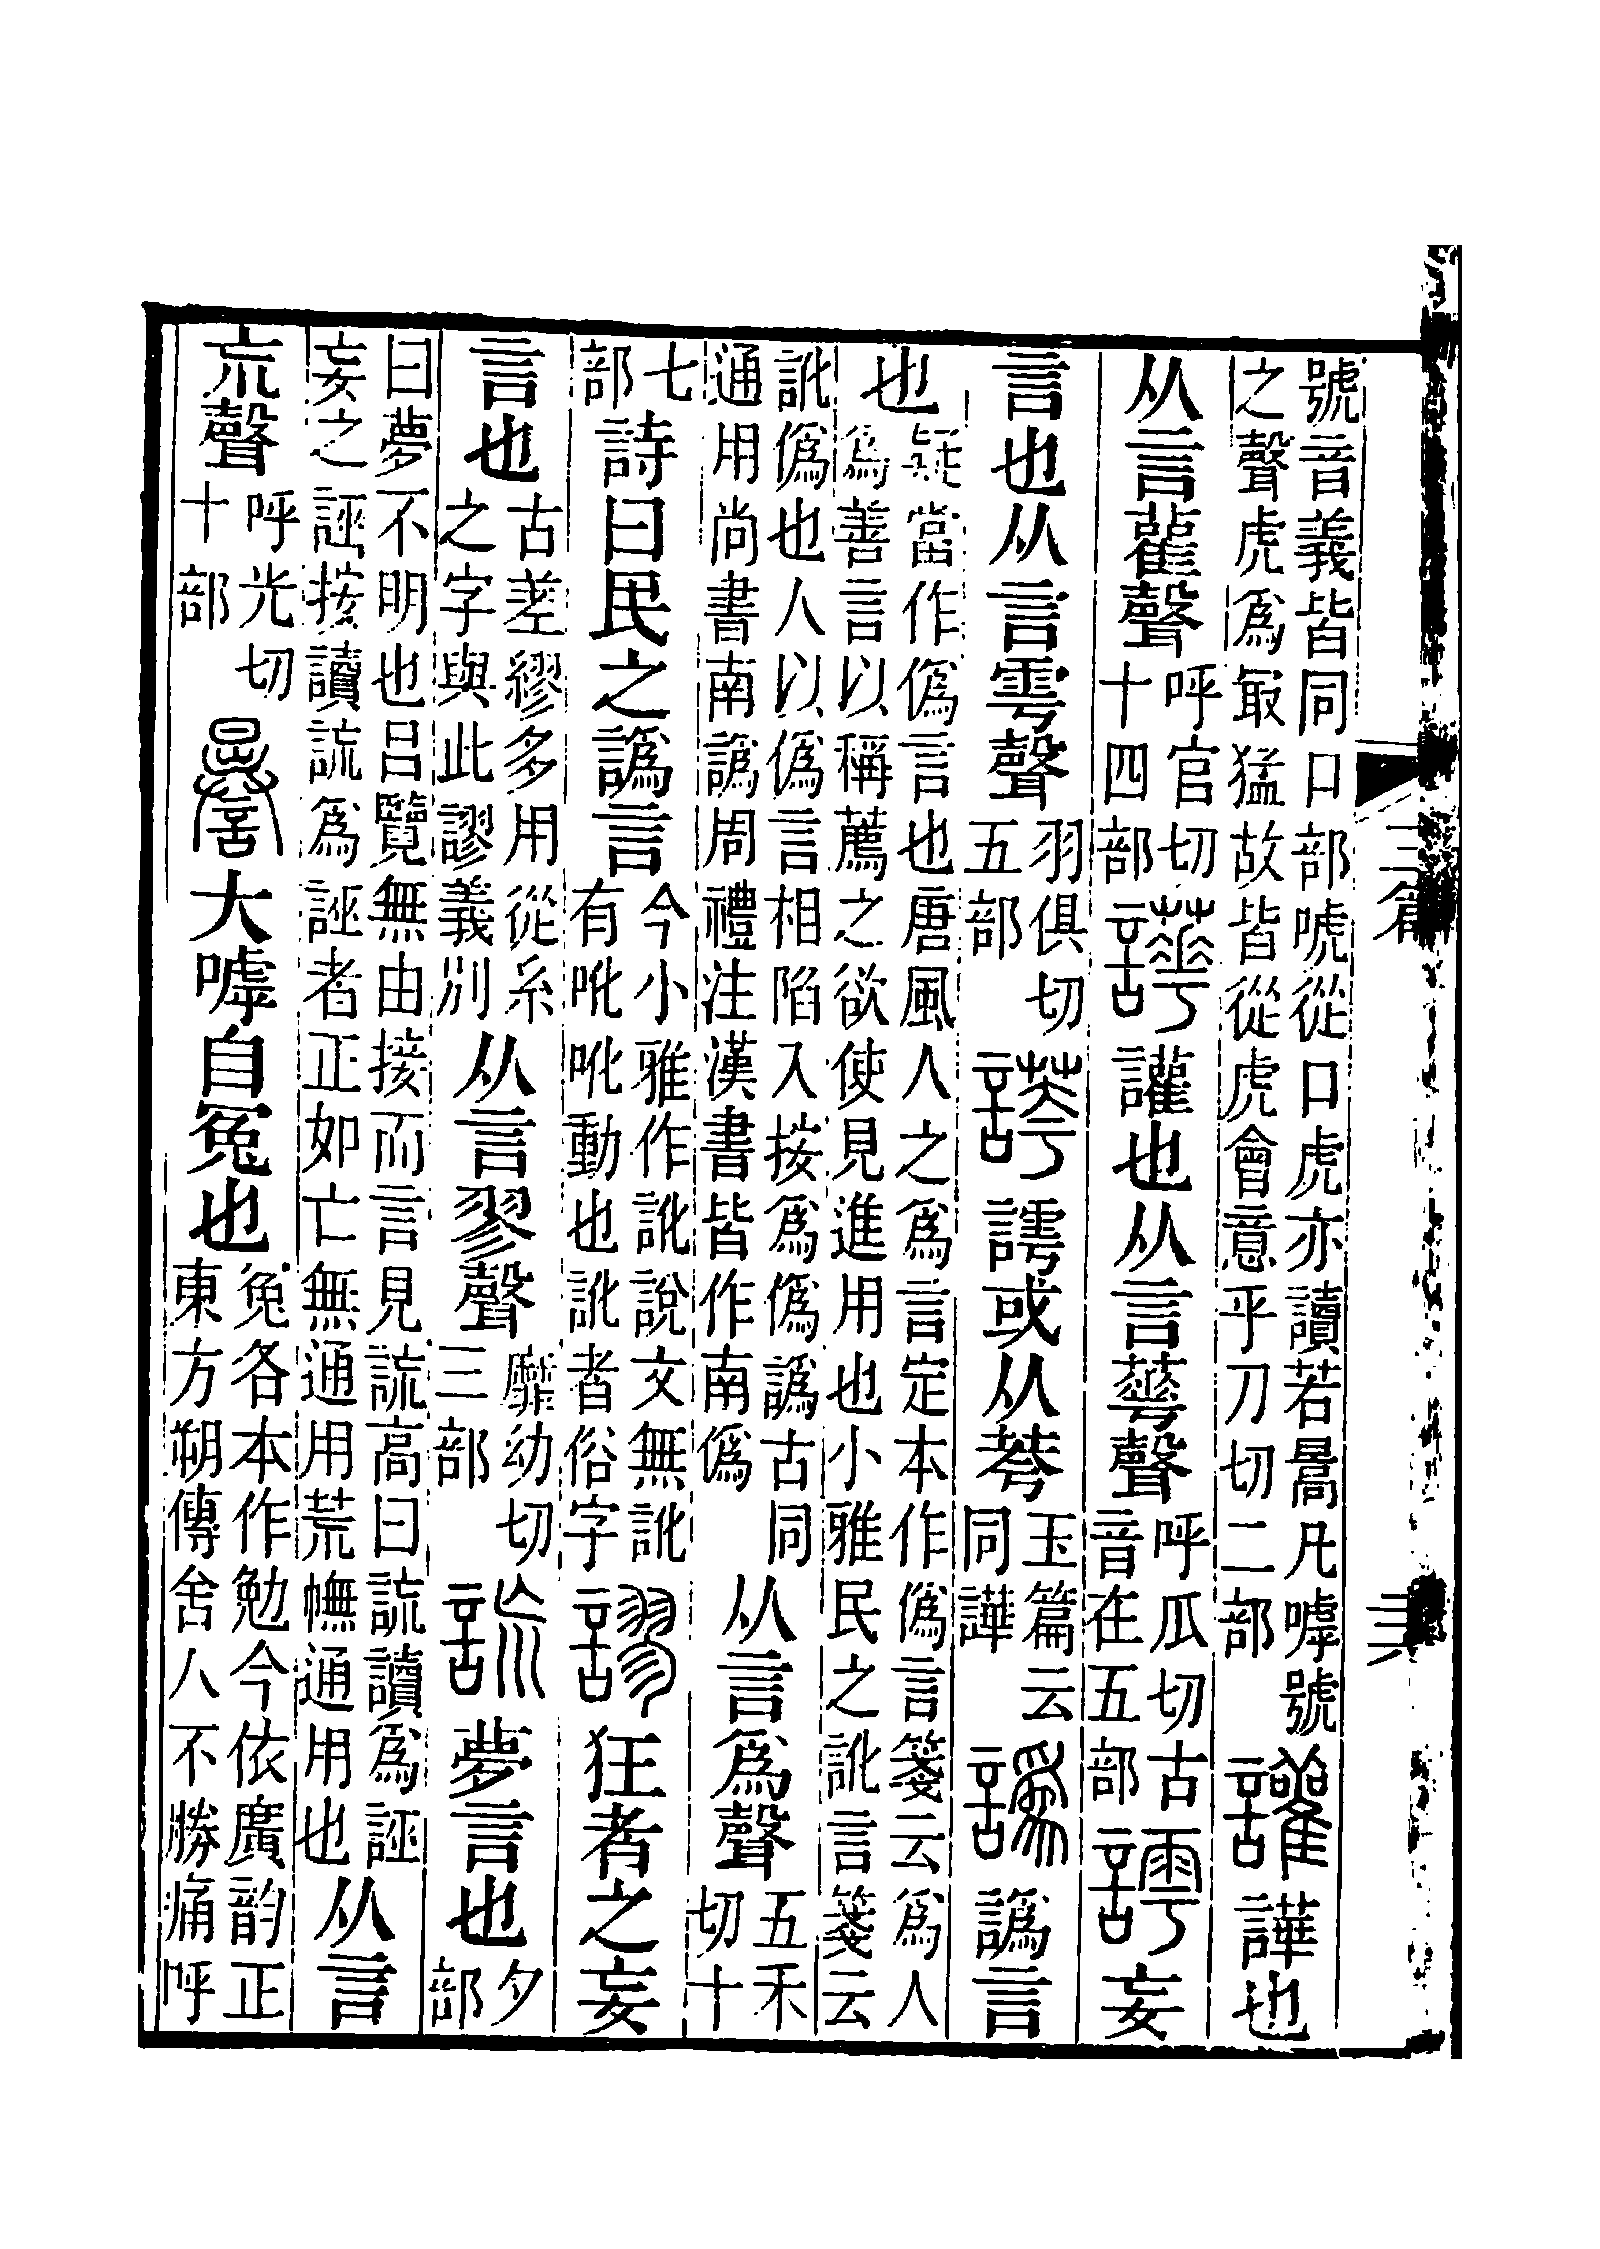 號音義皆同口部唬從口虎亦讀若暠凡嘑號之聲虎爲㝡猛故皆從虎會意乎刀切二部讙譁也
从言雚聲呼官切十四部譁讙也从言蕐聲呼瓜切古音在五部謣妄
言也从言雩聲羽俱切五部謣或从荂玉篇云同譁譌譌言
也疑當作僞言也唐風人之爲言定本作僞言箋云爲人爲善言以稱薦之欲使見進用也小雅民之訛言箋云
訛僞也人以僞言相陷入按爲僞譌古同通用尚書南譌周禮注漢書皆作南僞从言爲聲五禾切十
七部詩曰民之譌言今小雅作訛說文無訛有吪吪動也訛者俗字謬狂者之妄
言也古差繆多用從糸之字與此謬義別从言翏聲靡幼切三部詤夢言也夕部
曰夢不明也呂覽無由接而言見詤高曰詤讀爲誣妄之誣按讀詤爲誣者正如亡無通用荒幠通用也从言
巟聲呼光切十部大嘑自冤也冤各本作勉今依廣韵正東方朔傳舍人不勝痛呼
三篇
三